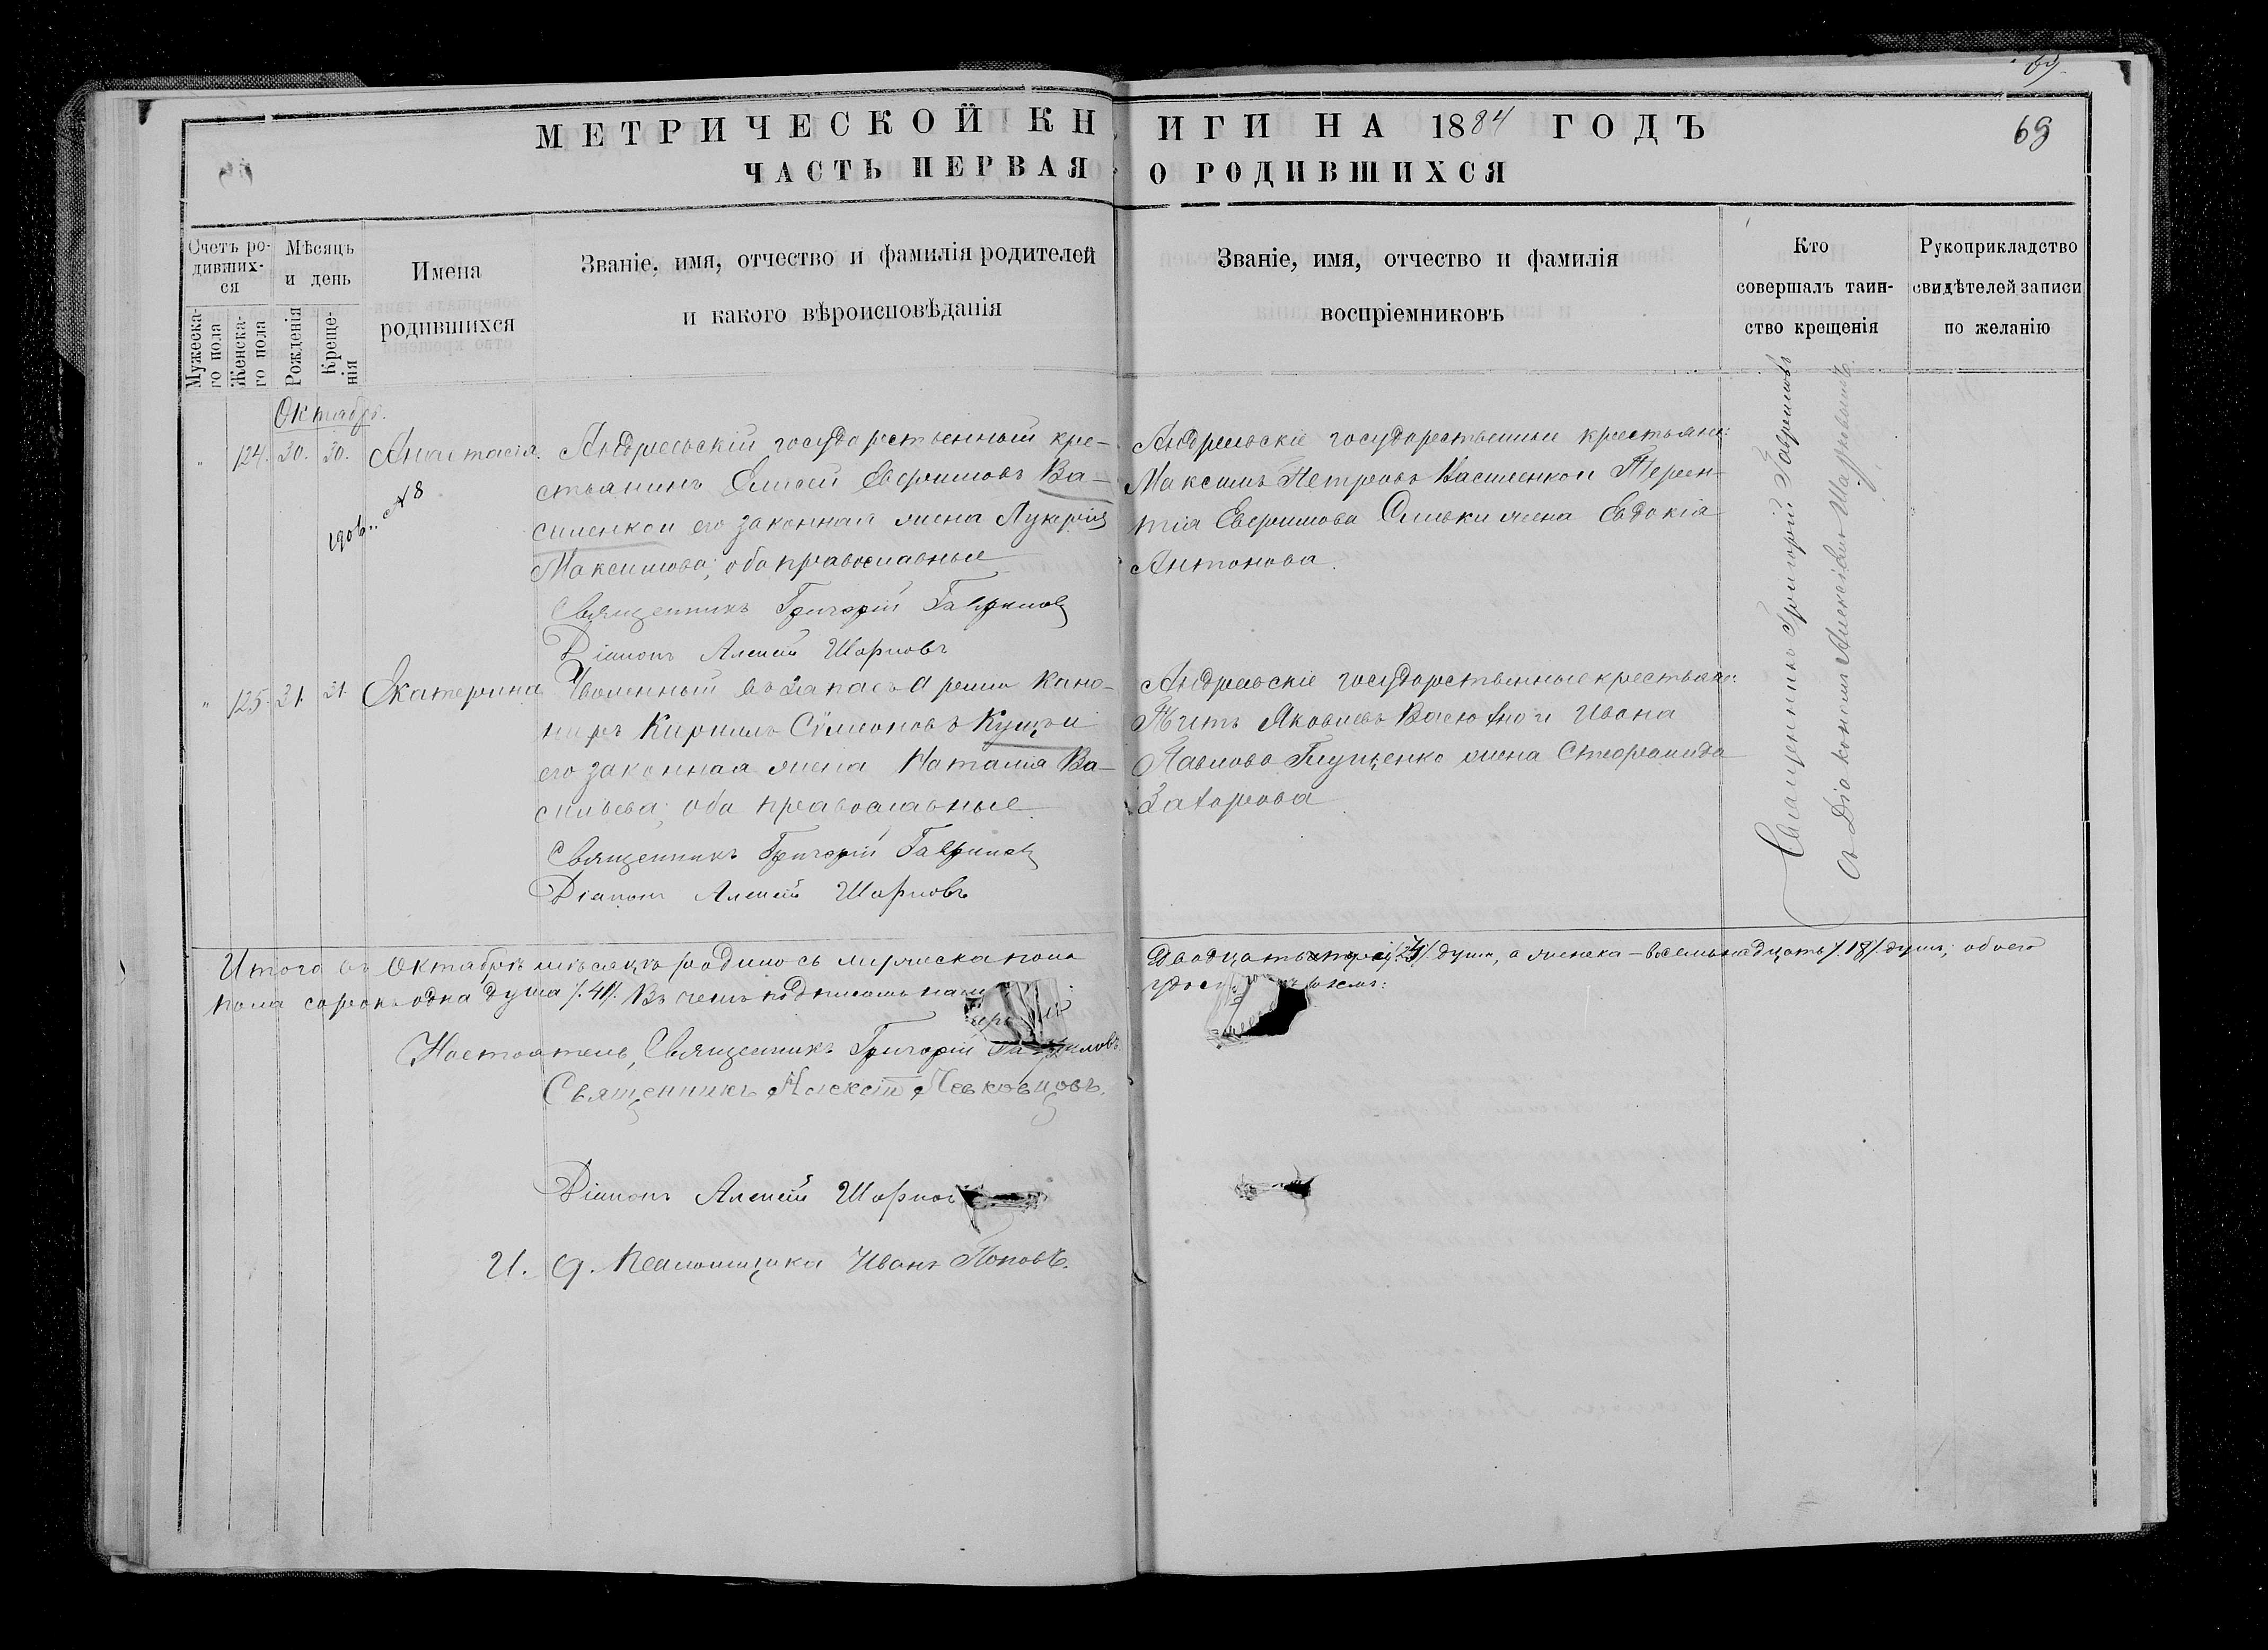 69.
МЕТРИЧЕСКОЙ КНИГИ НА 1884 ГОДЪ
69
ЧАСТЬ ПЕРВАЯ О РОДИВШИХСЯ
Счетъ родившихся
Мужескаго пола
Женскаго пола
Мѣсяцъ и день
Рожденія
Крещенія
Имена
родившихся
Званіе, имя, отчество и фамилія родителей
и какого вѣроисповѣданія
Званіе, имя, отчество и фамилія
воспріемниковъ
Кто
совершалъ таин-
ство крещенія
Рукоприкладство
свидѣтелей записи
по желанію
Октябрь.
" 124. 30. 30. Анастасія.
1906.. № 8
Андреевскій государственный кре-
стьянинъ Елисей Евфимовъ Ва-
силенко и его законная жена Лукерія
Максимова; оба православные
Священникъ Григорій Гавриловъ
Діаконъ Алексій Шарповъ
Андреевскіе государственные крестьяне:
Максимъ Петровъ Василенко и Терен-
тія Евфимова жена Евдокія
Антонова.
" 125. 31. 31. Екатерина
Уволенный въ запасъ арміи Кано-
ниръ Кириллъ Симеоновъ Куцъ и
его законная жена Наталія Ва-
сильева; оба православные.
Священникъ Григорій Гавриловъ
Діаконъ Алексій Шарповъ
Андреевскіе государственные крестьяне:
Титъ Яковлевъ и Ивана
Павлова Глущенко жена Стефанида
Захарова.
Священникъ Григорій Гавриловъ
съ Діакономъ Алексіемъ
Итого въ Октябрѣ мѣсяцѣ родилось мужеска пола
Двадцать три /23/ душ, а женска – восемьнадцать /18/ душъ; обоего
пола сорокъ одна душа /41/. Въ чемъ подписомъ
Настоятель, Священникъ Григорій Гавриловъ.
Священникъ Алексій Левковцовъ.
Діаконъ Алексій
И. д. Псаломщика Иванъ Поповъ.